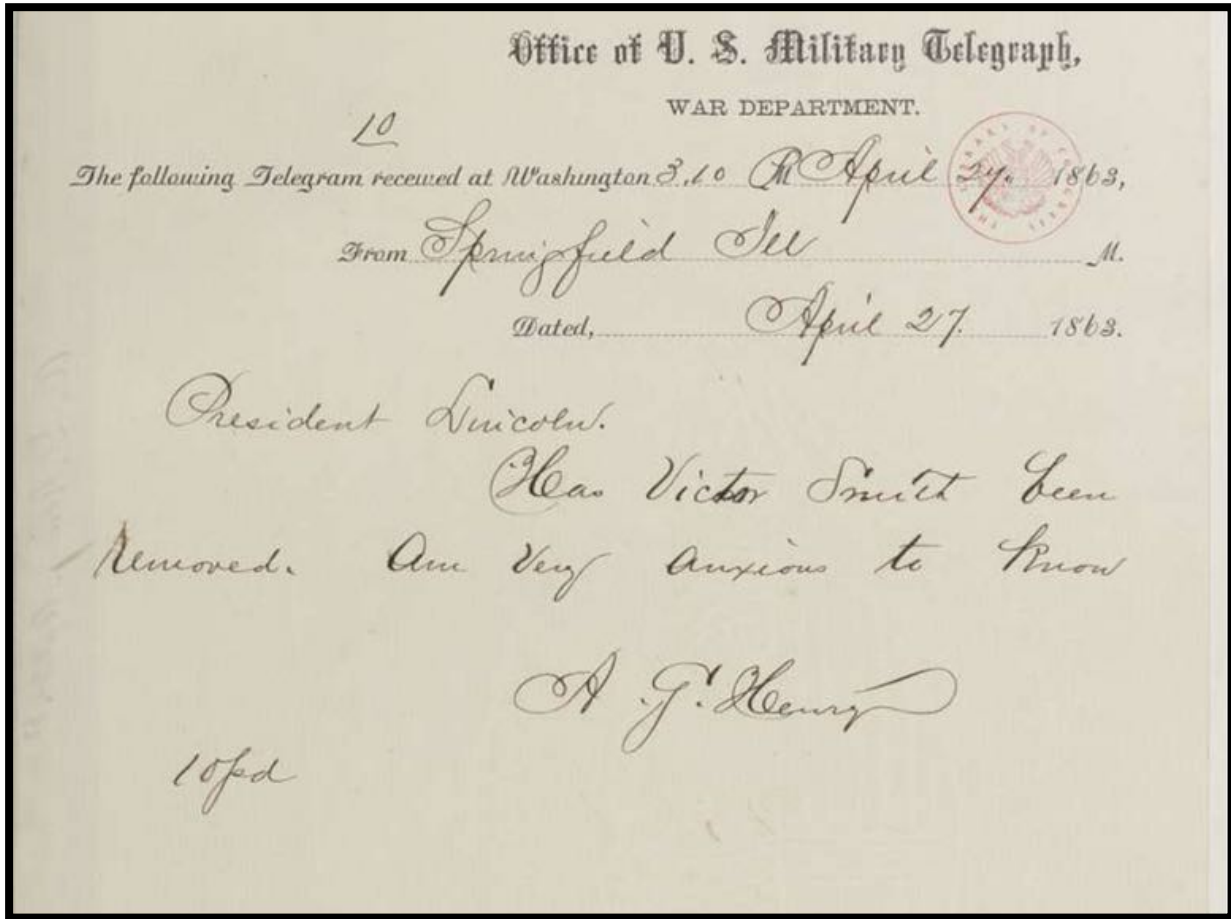 Office of U. S. Military Telegraph,
WAR DEPARTMENT.
10
The following Telegram received at Washington 3.10 PM April 27. 1863,
From Springfield Ill M.
Dated, April 27. 1863.
President Lincoln.
Has Victor Smith been
removed. Am Very anxious to Know
A. G. Henry
10 pd
THE LIBRARY OF CONGRESS